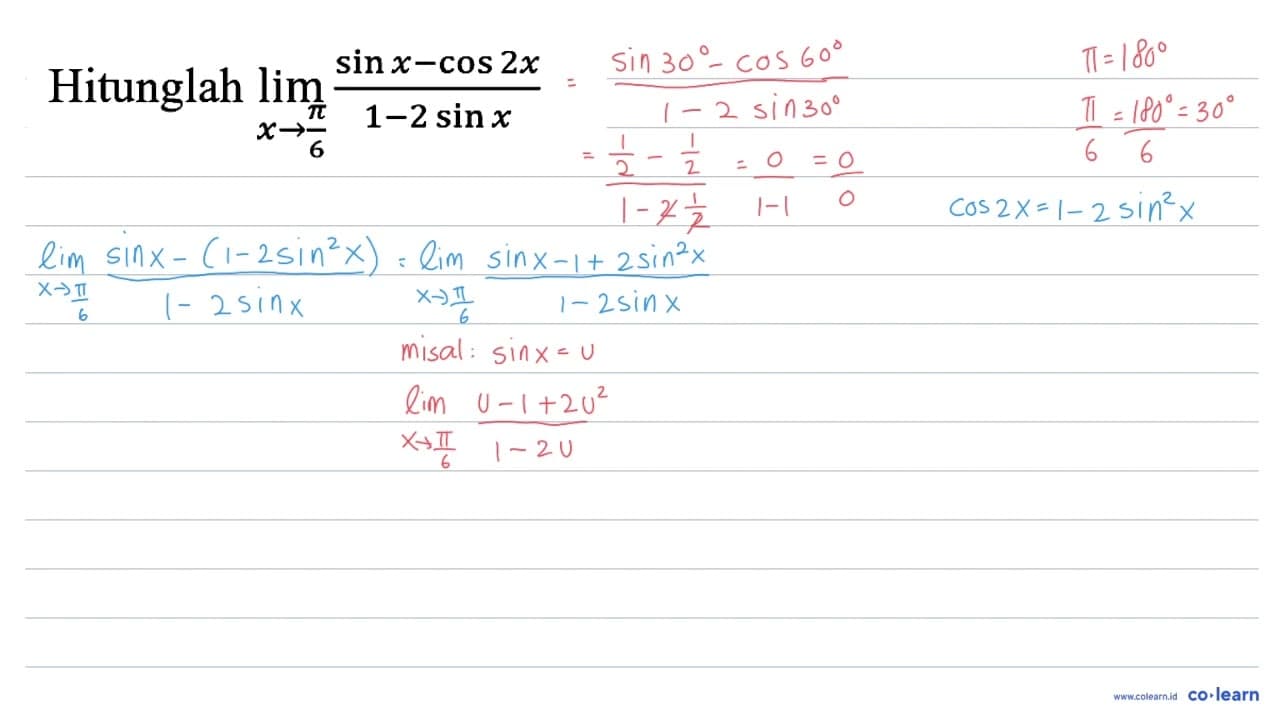 Hitunglah lim x→π/6 (sin x−cos 2x)/(1−2 sin x) = (sin 30° − cos 60°)/(1 − 2 sin 30°)
π = 180°
π/6 = 180°/6 = 30°
= (1/2 − 1/2)/(1 − 2 1/2) = 0/(1−1) = 0/0
cos 2x = 1 − 2 sin²x
lim x→π/6 (sin x − (1 − 2 sin²x))/(1 − 2 sin x) = lim x→π/6 (sin x − 1 + 2 sin²x)/(1 − 2 sin x)
misal: sin x = U
lim x→π/6 (U − 1 + 2U²)/(1 − 2U)
www.colearn.id co·learn